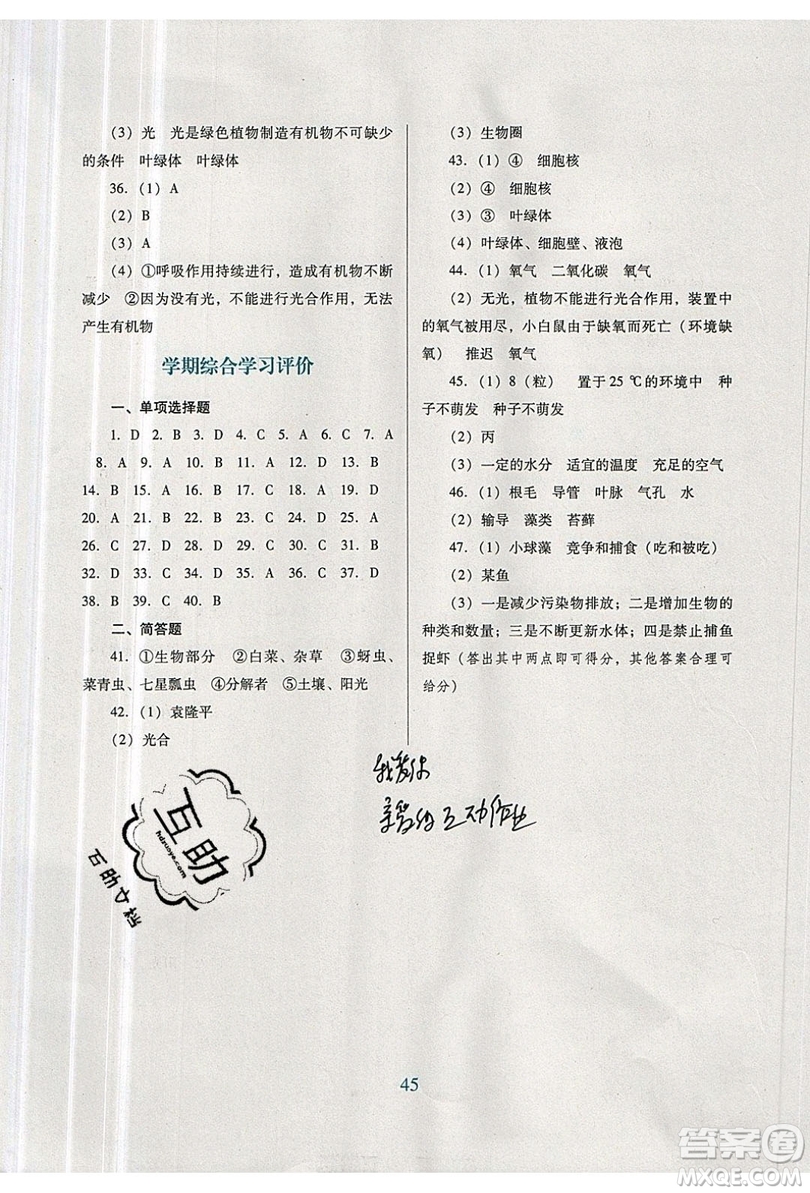 （3）光　光是绿色植物制造有机物不可缺少
的条件　叶绿体　叶绿体
36.（1）A
（2）B
（3）A
（4）①呼吸作用持续进行，造成有机物不断
减少　②因为没有光，不能进行光合作用，无法
产生有机物
学期综合学习评价
一、单项选择题
1. D　2. B　3. D　4. C　5. A　6. C　7. A
8. A　9. A　10. A　11. B　12. D　13. C
14. B　15. A　16. A　17. C　18. B　19. D
20. A　21. B　22. B　23. A　24. D　25. A
26. C　27. D　28. C　29. C　30. B　31. C
32. D　33. D　34. A　35. C　36. D　37. D
38. B　39. C　40. B
二、简答题
41. ①生物部分　②白菜、杂草　③蚜虫、
菜青虫、七星瓢虫　④分解者　⑤土壤、阳光
42.（1）袁隆平
（2）光合
（3）生物圈
43.（1）④　细胞核
（2）④　细胞核
（3）③　叶绿体
（4）叶绿体、细胞壁、液泡
44.（1）氧气　二氧化碳　氧气
（2）无光，植物不能进行光合作用，装置中
的氧气被用尽，小白鼠由于缺氧而死亡（环境缺
氧）　推迟　氧气
45.（1）8（粒）　置于 25 ℃的环境中　种
子不萌发　种子不萌发
（2）丙
（3）一定的水分　适宜的温度　充足的空气
46.（1）根毛　导管　叶脉　气孔　水
（2）输导　藻类　苔藓
47.（1）小球藻　竞争和捕食（吃和被吃）
（2）某鱼
（3）一是减少污染物排放；二是增加生物的
种类和数量；三是不断更新水体；四是禁止捕鱼
捉虾（答出其中两点即可得分，其他答案合理可
给分）
我爱你
互动作业
互助
hdzuoye.com
45
答案圈
MXQE.COM